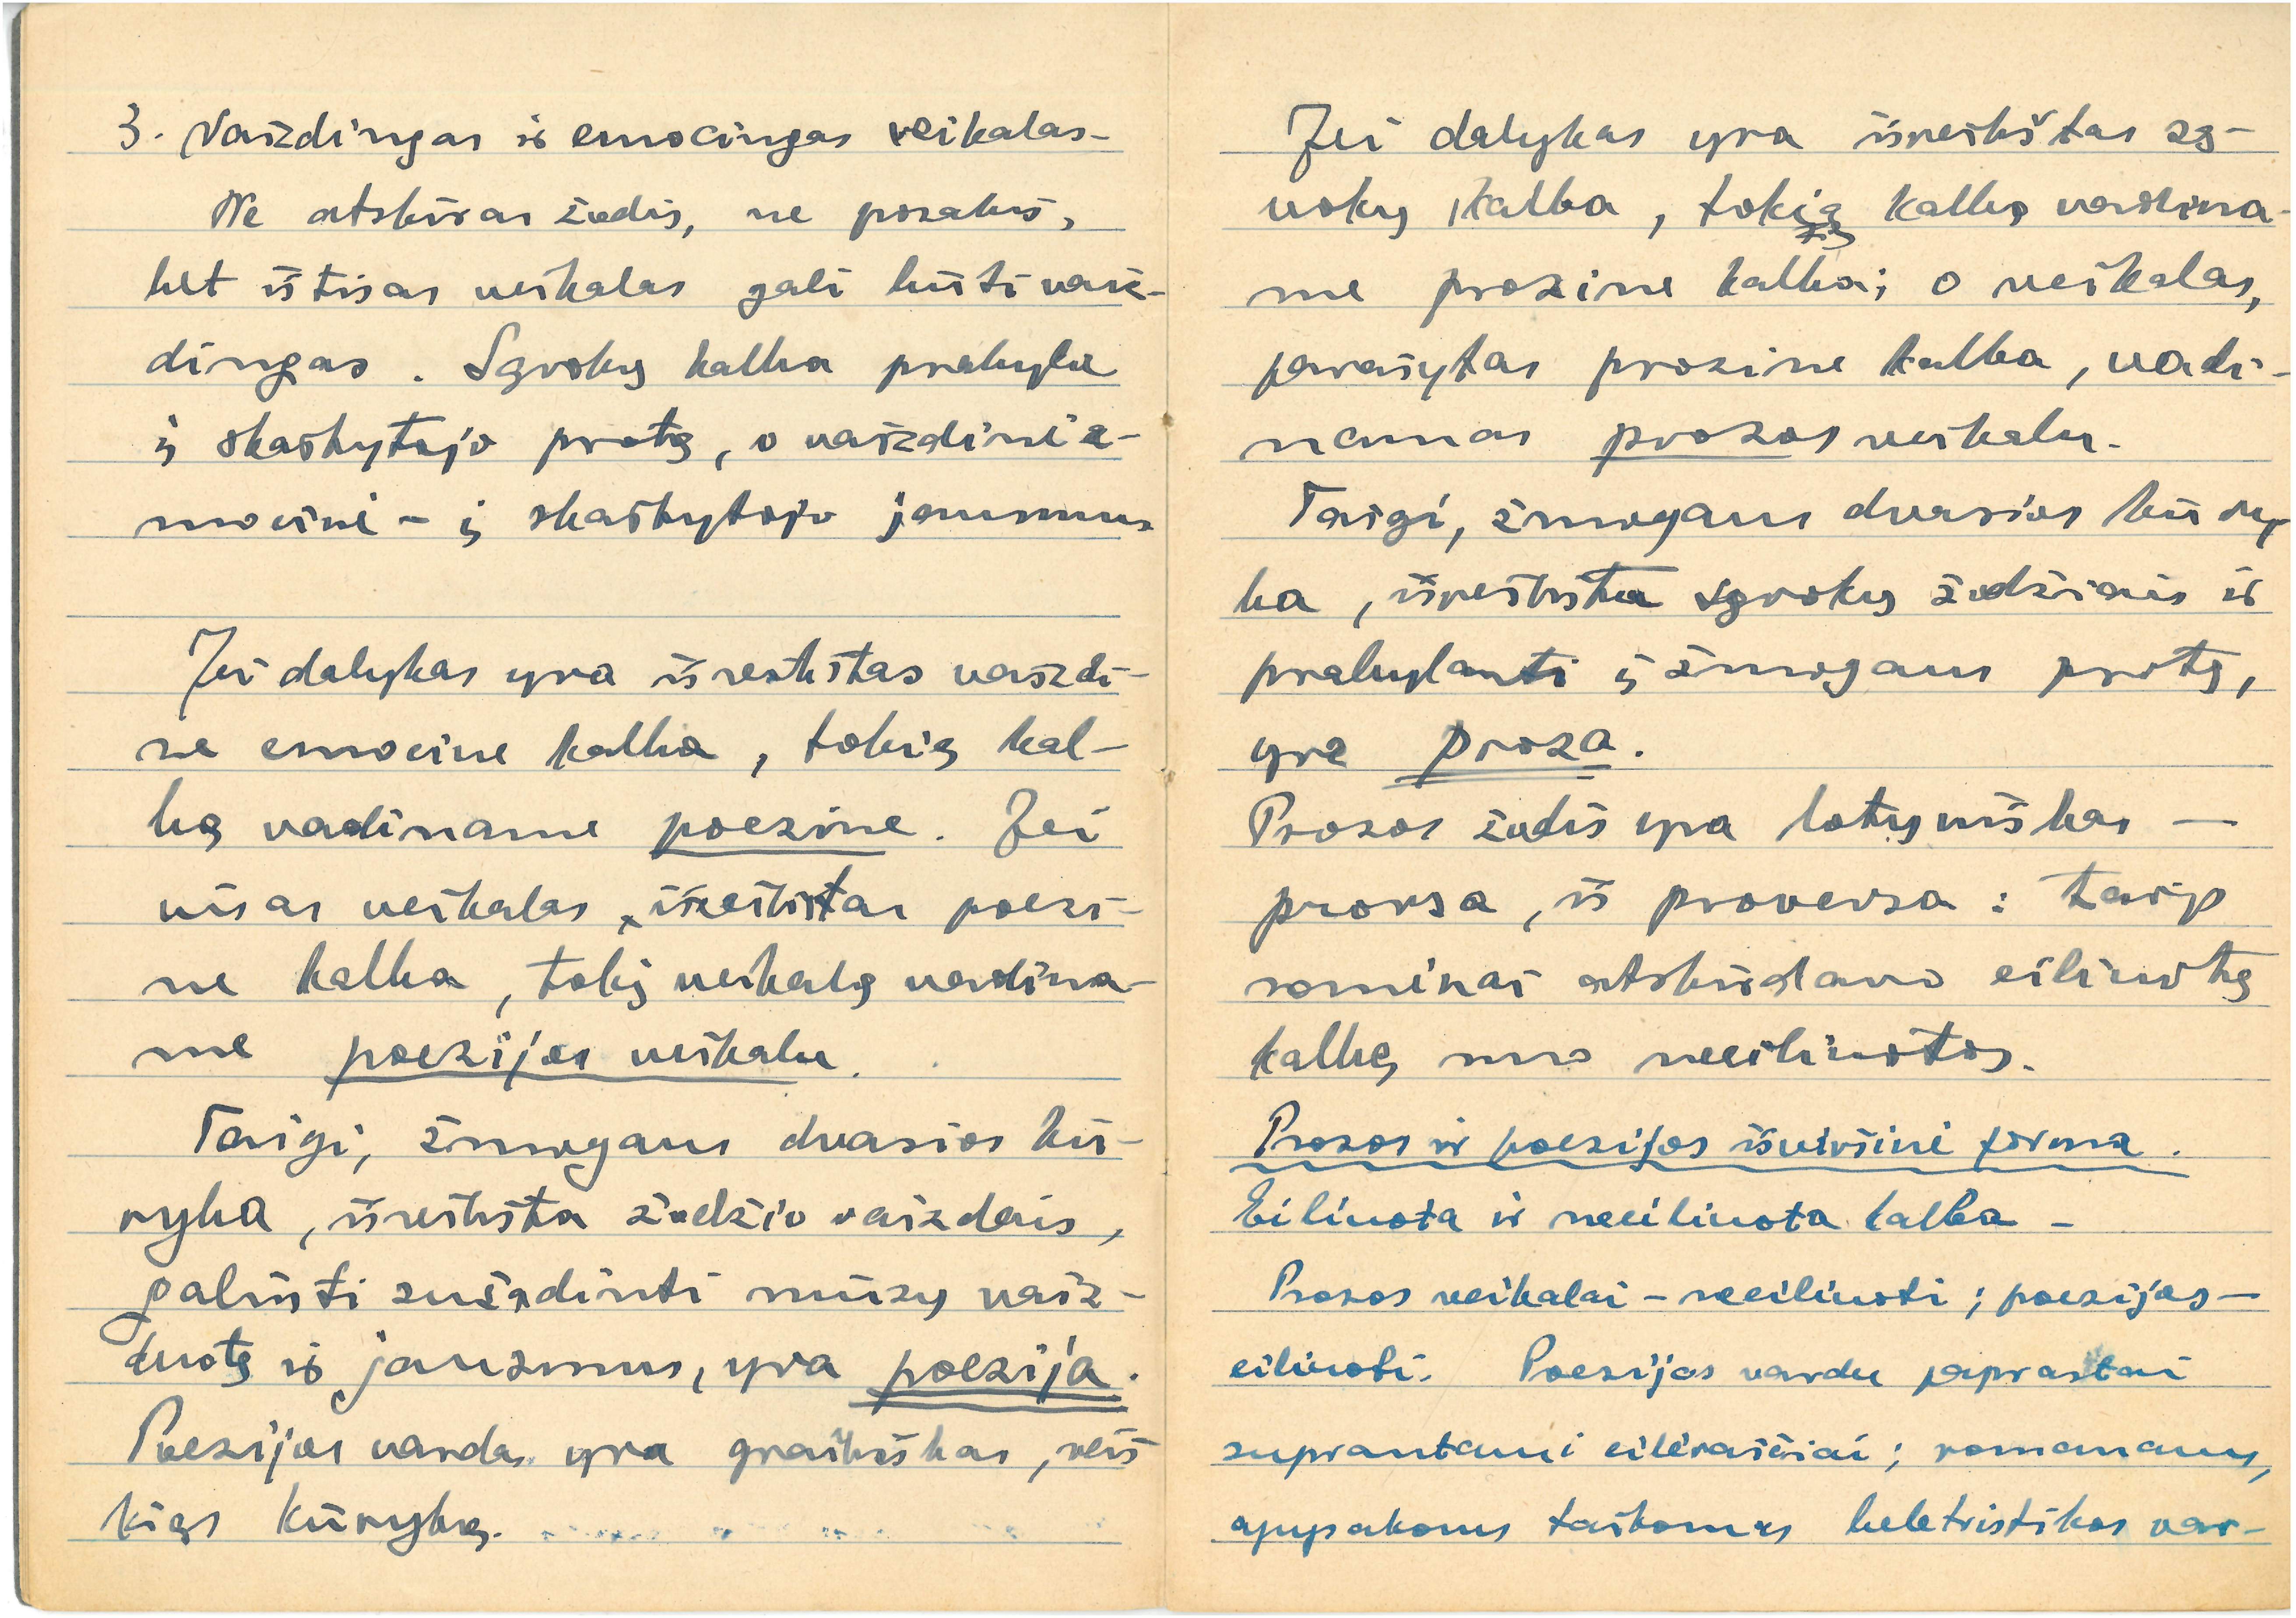 3. Vaizdingas ir emocingas veikalas-
Ne atskiras žodis, ne posakis,
bet ištisas veikalas gali būti vaiz-
dingas. Sąvokų kalba prabyla
į skaitytojo protą, o vaizdinė e-
mocinė - į skaitytojo jausmus
Jei dalykas yra išreikštas vaizdi-
ne emocine kalba, tokią kal-
bą vadiname poezine. Jei
visas veikalas išreikštas poezi-
ne kalba, tokį veikalą vadina-
me poezijos veikalu.
Taigi, žmogaus dvasios kū-
ryba, išreikšta žodžio vaizdais,
galinti sužadinti mūsų vaiz-
duotę ir jausmus, yra poezija.
Poezijos vardas yra graikiškas, reiš
kiąs kūrybą.
Jei dalykas yra išreikštas są-
vokų kalba, tokią kalbą vadina-
me prozine kalba; o veikalas,
parašytas prozine kalba, vadi-
namas prozos veikalu.
Taigi, žmogaus dvasios kūry
ba, išreikšta sąvokų žodžiais ir
prabylanti į žmogaus protą,
yra proza.
Prozos žodis yra lotyniškas —
prorsa, iš proversa: taip
rominai atskirdavo eiliuotą
kalbą nuo neeiliuotos.
Prozos ir poezijos išviršinė forma.
Eiliuota ir neeiliuota kalba -
Prozos veikalai - neeiliuoti; poezijos -
eiliuoti. Poezijos vardu paprastai
suprantami eilėraščiai; romanams,
apysakoms taikomas beletristikos var-